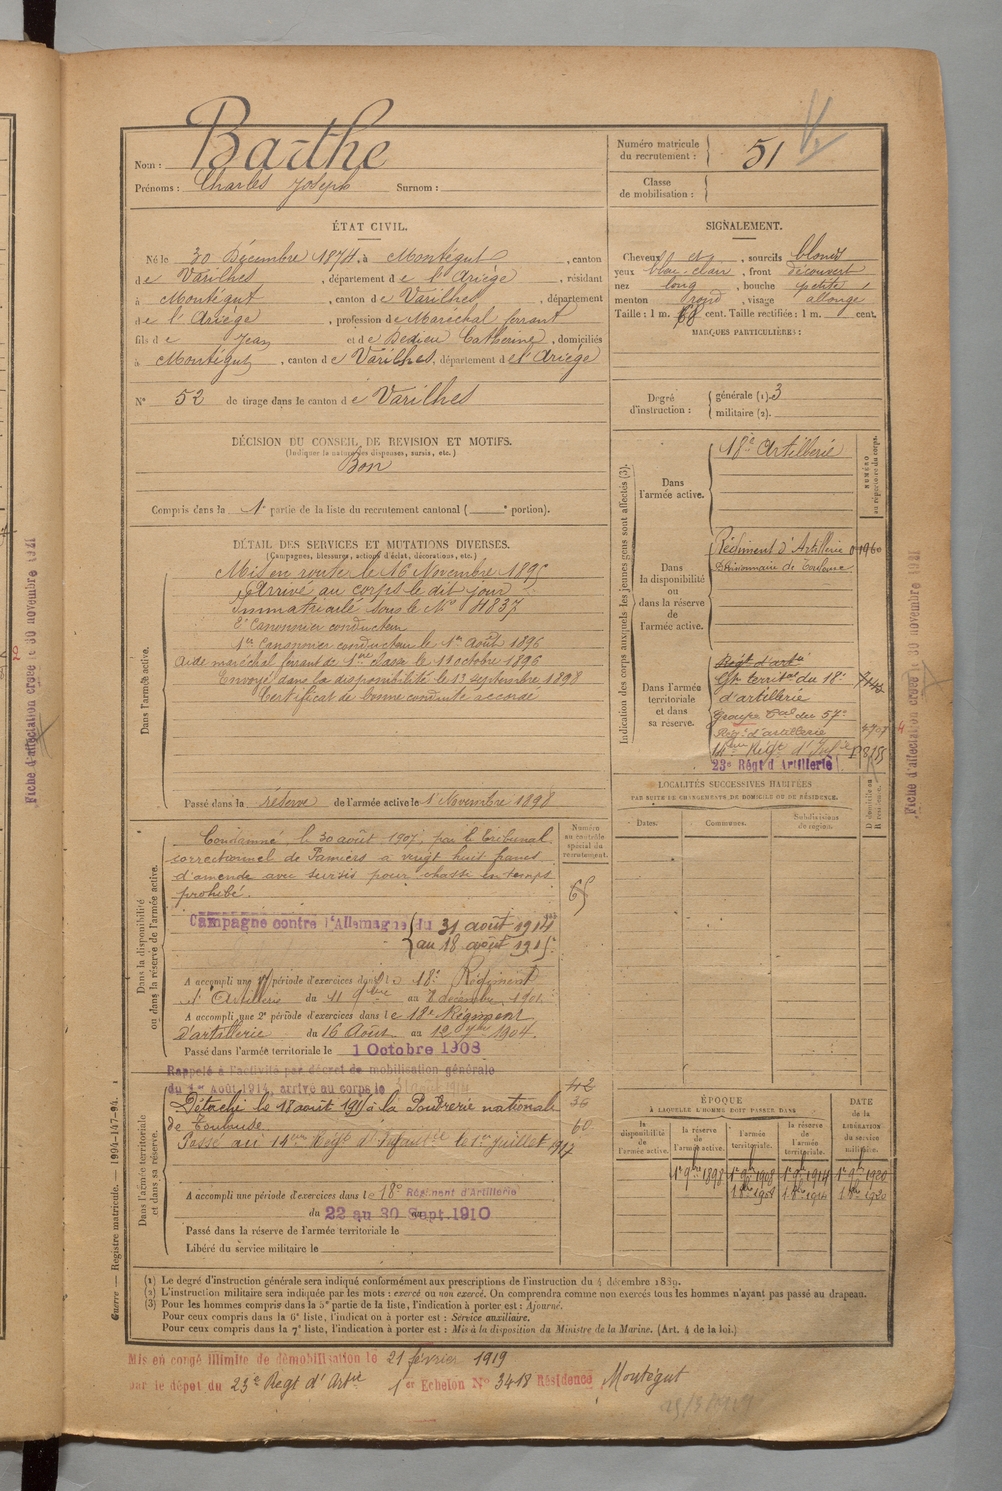 Nom : Barthe
Prénoms : Charles Joseph Surnom :
Numéro matricule du recrutement : 51
Classe de mobilisation :
ÉTAT CIVIL.
Né le 30 Décembre 1874, à Montégut, canton
de Varilhes, département de l'Ariège, résidant
à Montégut, canton de Varilhes, département
de l'Ariège, profession de Maréchal ferrant
fils de Jean et de Dedieu Catherine, domiciliés
à Montégut, canton de Varilhes, département de l'Ariège
N° 52 de tirage dans le canton de Varilhes
SIGNALEMENT.
Cheveux et , sourcils blonds
yeux bleu-clair, front découvert
nez long, bouche petite
menton rond, visage allongé
Taille : 1 m. 68 cent. Taille rectifiée : 1 m. cent.
MARQUES PARTICULIÈRES :
Degré d'instruction : générale (1) 3
militaire (2).
DÉCISION DU CONSEIL DE REVISION ET MOTIFS.
(Indiquer la nature des dispenses, sursis, etc.)
Bon
Compris dans la 1e partie de la liste du recrutement cantonal ( e portion).
DÉTAIL DES SERVICES ET MUTATIONS DIVERSES.
(Campagnes, blessures, actions d'éclat, décorations, etc.)
Dans l'armée active.
Mis en route le 16 Novembre 1895
Arrivé au corps le dit jour
Immatriculé sous le N° 4837
2e Canonnier conducteur
1er Canonnier conducteur le 1er Août 1896
Aide maréchal ferrant de 1ère classe le 11 octobre 1896
Envoyé dans la disponibilité le 19 septembre 1898
Certificat de bonne conduite accordé
Passé dans la réserve de l'armée active le 1er Novembre 1898
Indication des corps auxquels les jeunes gens sont affectés (3).
NUMÉRO au répertoire du corps.
Dans l'armée active.
18e Artillerie
Dans la disponibilité ou dans la réserve de l'armée active.
Régiment d'Artillerie 01960
Divisionnaire de Toulouse
Dans l'armée territoriale et dans sa réserve.
Régt d'artie
Gpe territal du 18e
d'artillerie
Groupe tal du 57e
Régt d'artillerie
14ème Régt d'Infie
23e Régt d'Artillerie
LOCALITÉS SUCCESSIVES HABITÉES
PAR SUITE DE CHANGEMENTS DE DOMICILE OU DE RÉSIDENCE.
Dates. Communes. Subdivisions de région. Domicile ou Résidence.
Dans la disponibilité ou dans la réserve de l'armée active.
Numéro au contrôle spécial du recrutement.
Condamné le 30 août 1907 par le tribunal
correctionnel de Pamiers à vingt huit francs
d'amende avec sursis pour chasse en temps
prohibé.
65
Campagne contre l'Allemagne du 31 août 1914
au 18 août 1915
A accompli une 1re période d'exercices dans le 18e Régiment
d'Artillerie du 11 9bre au 8 décembre 1901
A accompli une 2e période d'exercices dans le 18e Régiment
d'artillerie du 16 Août au 12 7bre 1904.
Passé dans l'armée territoriale le 1 Octobre 1908
Rappelé à l'activité par décret de mobilisation générale
du 1er Août 1914, arrivé au corps le
Dans l'armée territoriale et dans sa réserve.
Détaché le 18 août 1915 à la Poudrerie nationale
de Toulouse.
Passé au 14ème Régt d'Infanterie le 1er juillet 1917
42
36
60
A accompli une période d'exercices dans le 18e Régiment d'Artillerie
du 22 au 30 Sept. 1910
Passé dans la réserve de l'armée territoriale le
Libéré du service militaire le
ÉPOQUE
À LAQUELLE L'HOMME DOIT PASSER DANS
DATE de la LIBÉRATION du service militaire.
la disponibilité de l'armée active. la réserve de l'armée active. l'armée territoriale. la réserve de l'armée territoriale.
1er 9bre 1898 1er 9bre 1908 1er 9bre 1914 1er 9bre 1920
1 8bre 1908 1 8bre 1914 1 8bre 1920
(1) Le degré d'instruction générale sera indiqué conformément aux prescriptions de l'instruction du 4 décembre 1889.
(2) L'instruction militaire sera indiquée par les mots : exercé ou non exercé. On comprendra comme non exercés tous les hommes n'ayant pas passé au drapeau.
(3) Pour les hommes compris dans la 5e partie de la liste, l'indication à porter est : Ajourné.
Pour ceux compris dans la 6e liste, l'indication à porter est : Service auxiliaire.
Pour ceux compris dans la 7e liste, l'indication à porter est : Mis à la disposition du Ministre de la Marine. (Art. 4 de la loi.)
Guerre — Registre matricule. — 1994-147-94.
Mis en congé illimité de démobilisation le 21 février 1919
par le dépôt du 23e Régt d'Artie 1er Echelon N° 3418 Résidence Montégut
Fiche d'affectation créée le 30 novembre 1921
Fiche d'affectation créée le 30 novembre 1921